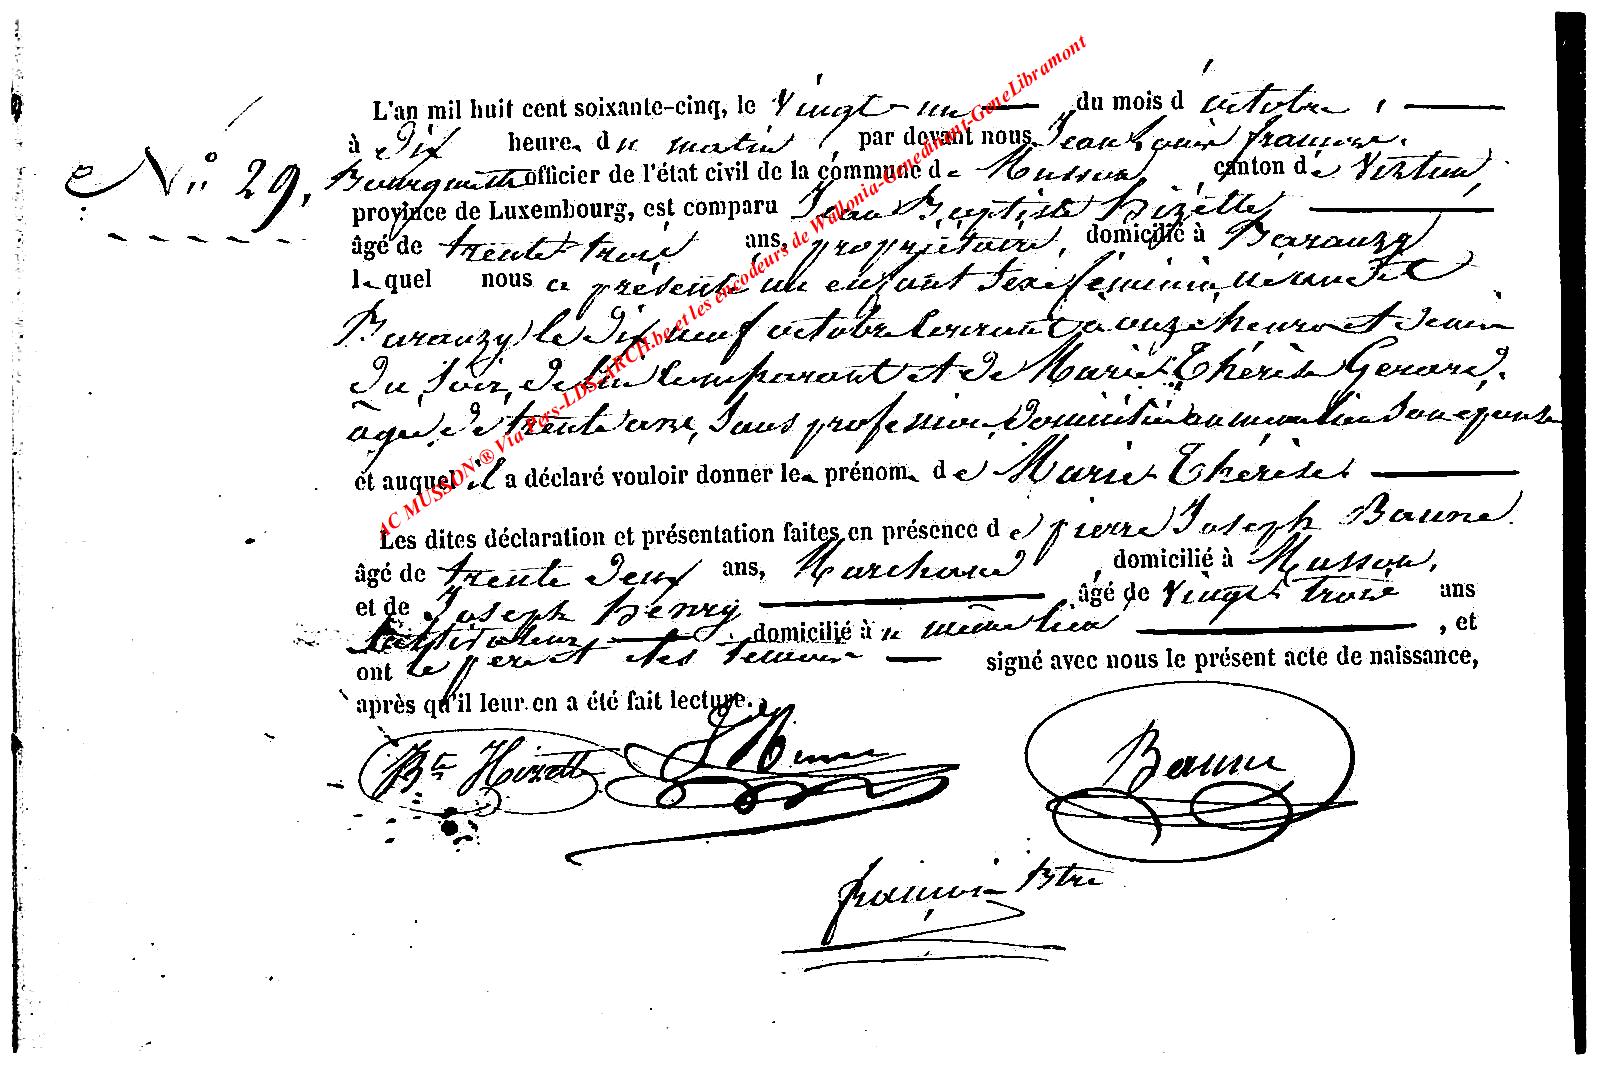 L'an mil huit cent soixante-cinq, le vingt-un du mois d'octobre,
à dix heure du matin, par devant nous Jean Louis François
N° 29, officier de l'état civil de la commune de Musson canton de Virton,
province de Luxembourg, est comparu Jean Baptiste Hizette
âgé de trente-trois ans, propriétaire, domicilié à Baranzy
lequel nous a présenté un enfant sexe féminin né
Baranzy le dix neuf octobre courant à onze heures et demie
du soir, de lui comparant et de Marie Thérèse Gerard,
âgée de trente ans, sans profession, domiciliée au même lieu son épouse
et auquel il a déclaré vouloir donner les prénom de Marie Thérèse
Les dites déclaration et présentation faites en présence de pierre Joseph Baune
âgé de trente deux ans, Marchand, domicilié à Musson,
et de Joseph Henry âgé de vingt trois ans
Instituteur domicilié à même lieu, et
ont le père et les témoins signé avec nous le présent acte de naissance,
après qu'il leur en a été fait lecture.
Bte Hizette
Baune
AC MUSSON ® Via Pers-LDS-ARCH.be et les encodeurs de Wallonia-Genedinant-GeneLibramont